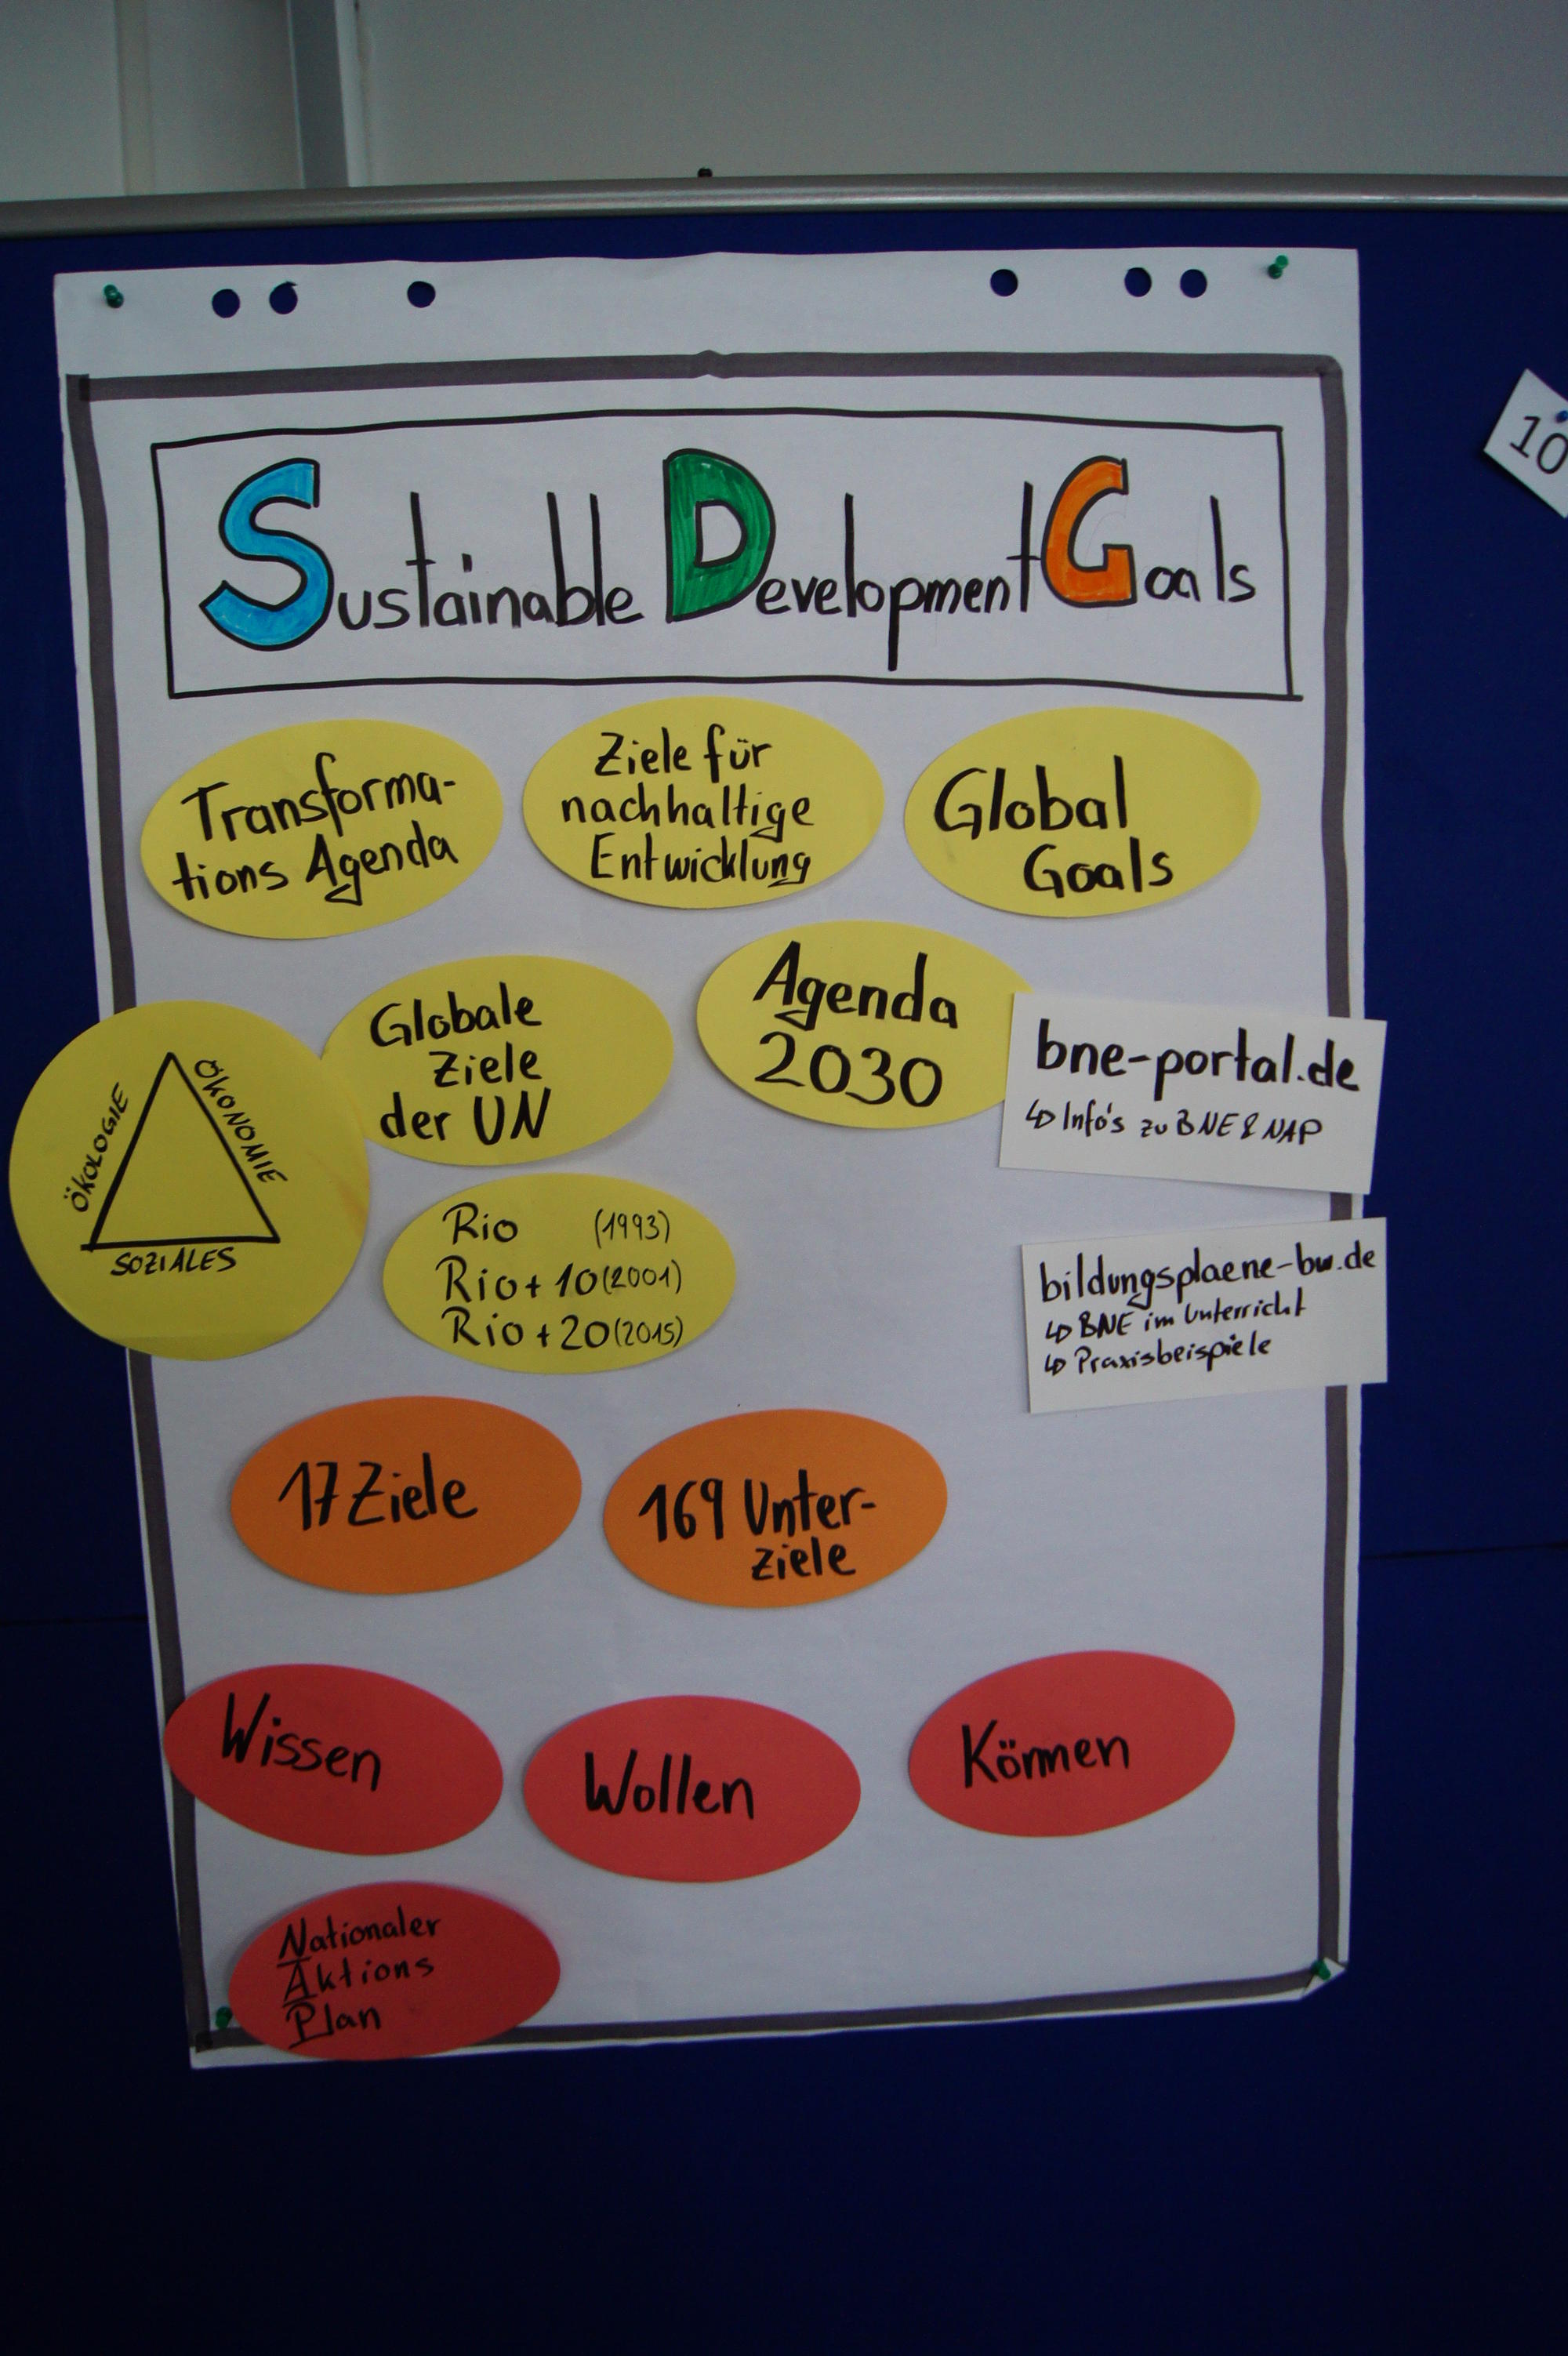 Sustainable Development Goals
Transforma-
tions Agenda
Ziele für
nachhaltige
Entwicklung
Global
Goals
Globale
Ziele
der UN
Agenda
2030
bne-portal.de
↳ Info's zu BNE & NAP
ÖKOLOGIE
ÖKONOMIE
SOZIALES
Rio (1993)
Rio + 10 (2001)
Rio + 20 (2015)
bildungsplaene-bw.de
↳ BNE im Unterricht
↳ Praxisbeispiele
17 Ziele
169 Unter-
ziele
Wissen
Wollen
Können
Nationaler
Aktions
Plan
10